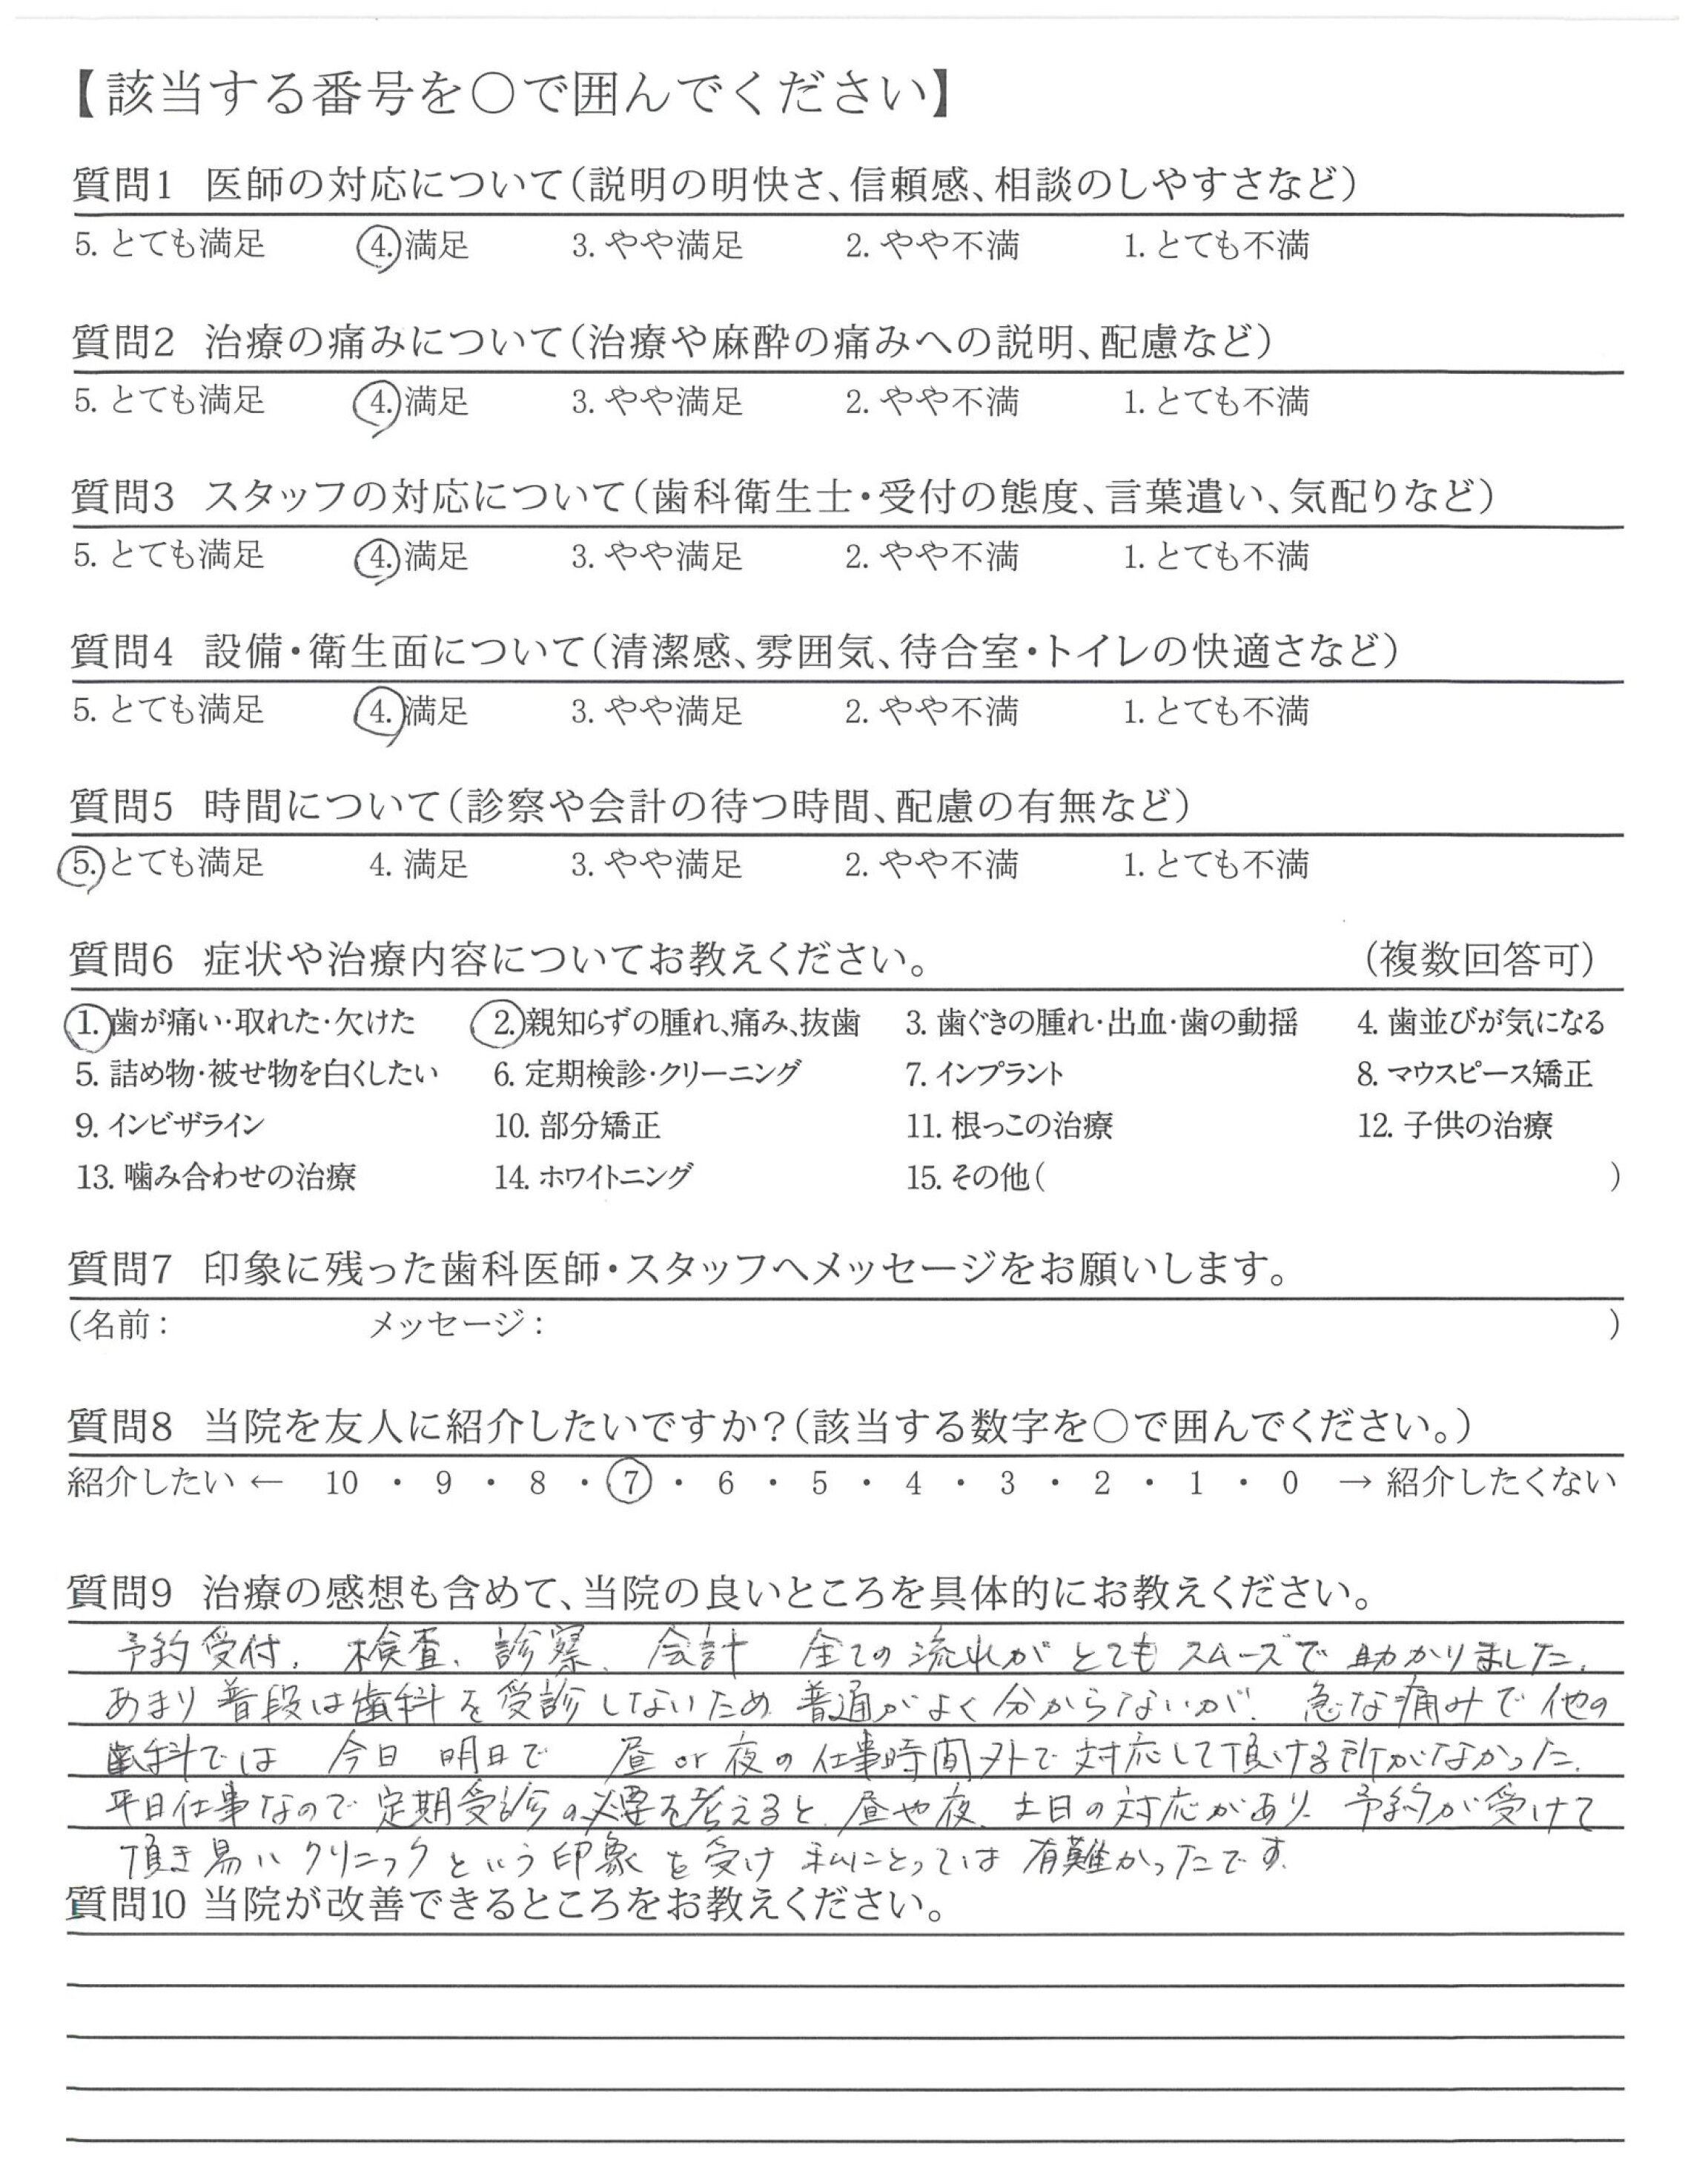 【該当する番号を○で囲んでください】
質問1 医師の対応について(説明の明快さ、信頼感、相談のしやすさなど)
5. とても満足 4. 満足 3. やや満足 2. やや不満 1. とても不満
質問2 治療の痛みについて(治療や麻酔の痛みへの説明、配慮など)
5. とても満足 4. 満足 3. やや満足 2. やや不満 1. とても不満
質問3 スタッフの対応について(歯科衛生士・受付の態度、言葉遣い、気配りなど)
5. とても満足 4. 満足 3. やや満足 2. やや不満 1. とても不満
質問4 設備・衛生面について(清潔感、雰囲気、待合室・トイレの快適さなど)
5. とても満足 4. 満足 3. やや満足 2. やや不満 1. とても不満
質問5 時間について(診察や会計の待つ時間、配慮の有無など)
5. とても満足 4. 満足 3. やや満足 2. やや不満 1. とても不満
質問6 症状や治療内容についてお教えください。 (複数回答可)
1. 歯が痛い・取れた・欠けた 2. 親知らずの腫れ、痛み、抜歯 3. 歯ぐきの腫れ・出血・歯の動揺 4. 歯並びが気になる
5. 詰め物・被せ物を白くしたい 6. 定期検診・クリーニング 7. インプラント 8. マウスピース矯正
9. インビザライン 10. 部分矯正 11. 根っこの治療 12. 子供の治療
13. 噛み合わせの治療 14. ホワイトニング 15. その他( )
質問7 印象に残った歯科医師・スタッフへメッセージをお願いします。
(名前: メッセージ: )
質問8 当院を友人に紹介したいですか?(該当する数字を○で囲んでください。)
紹介したい ← 10 ・ 9 ・ 8 ・ 7 ・ 6 ・ 5 ・ 4 ・ 3 ・ 2 ・ 1 ・ 0 → 紹介したくない
質問9 治療の感想も含めて、当院の良いところを具体的にお教えください。
予約受付、検査、診察、会計 全ての流れがとてもスムーズで助かりました。
あまり普段は歯科を受診しないため 普通がよく分からないが、急な痛みで他の
歯科では 今日 明日で 昼or夜の仕事時間外で対応して頂ける所がなかった。
平日仕事なので定期受診の必要を考えると、昼や夜、土日の対応があり、予約が受けて
頂き易いクリニックという印象を受け 私にとっては有難かったです。
質問10 当院が改善できるところをお教えください。